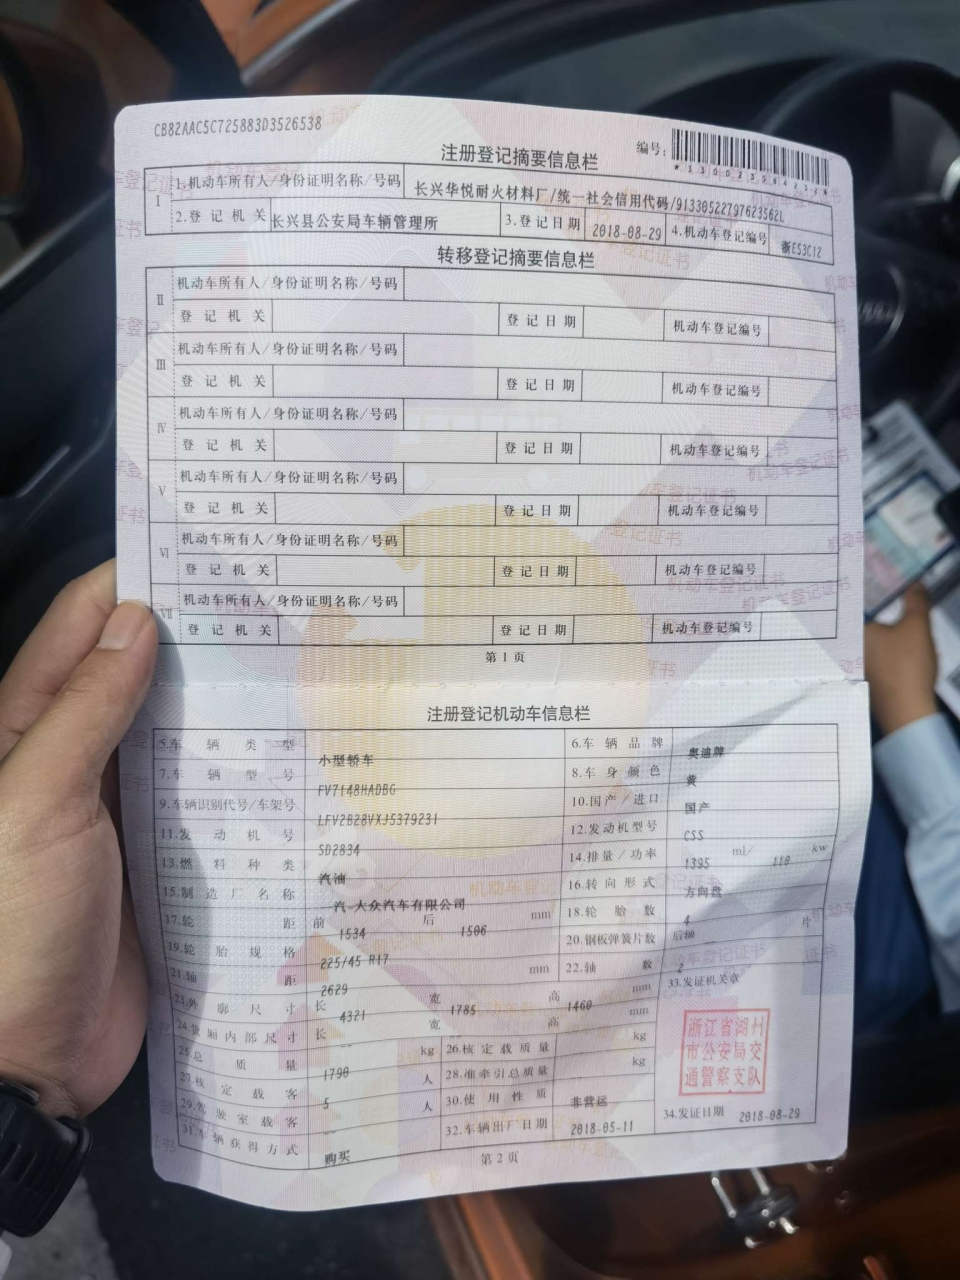 CB82AAC5C725883D3526538
编号:
注册登记摘要信息栏
I 1.机动车所有人/身份证明名称/号码 长兴华悦耐火材料厂/统一社会信用代码/91330522797623562L
2.登记机关 长兴县公安局车辆管理所 3.登记日期 2018-08-29 4.机动车登记编号 浙E53C12
转移登记摘要信息栏
II 机动车所有人/身份证明名称/号码
登记机关 登记日期 机动车登记编号
III 机动车所有人/身份证明名称/号码
登记机关 登记日期 机动车登记编号
IV 机动车所有人/身份证明名称/号码
登记机关 登记日期 机动车登记编号
V 机动车所有人/身份证明名称/号码
登记机关 登记日期 机动车登记编号
VI 机动车所有人/身份证明名称/号码
登记机关 登记日期 机动车登记编号
VII 机动车所有人/身份证明名称/号码
登记机关 登记日期 机动车登记编号
第1页
注册登记机动车信息栏
5.车辆类型 小型轿车 6.车辆品牌 奥迪牌
7.车辆型号 FV7148HADBG 8.车身颜色 黄
9.车辆识别代号/车架号 LFV2B28VXJ5379231 10.国产/进口 国产
11.发动机号 SD2834 12.发动机型号 CSS
13.燃料种类 汽油 14.排量/功率 1395 ml/ 110 kw
15.制造厂名称 一汽-大众汽车有限公司 16.转向形式 方向盘
17.轮距 前 1534 后 1506 mm 18.轮胎数 4
19.轮胎规格 225/45 R17 20.钢板弹簧片数 后轴 片
21.轴距 2629 mm 22.轴数 2
23.外廓尺寸 长 4321 宽 1785 高 1460 mm 33.发证机关章
24.货厢内部尺寸 长 -- 宽 高 mm
25.总质量 1790 kg 26.核定载质量 kg
27.核定载客 5 人 28.准牵引总质量 kg
29.驾驶室载客 -- 人 30.使用性质 非营运
31.车辆获得方式 购买 32.车辆出厂日期 2018-05-11 34.发证日期 2018-08-29
浙江省湖州
市公安局交
通警察支队
第2页